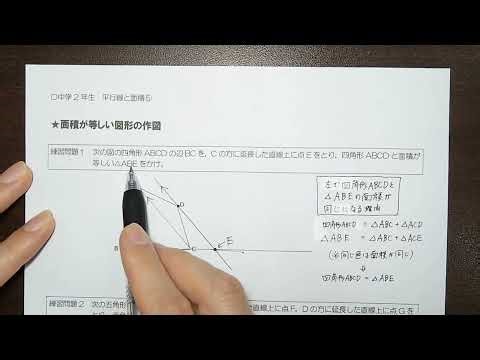 □中学2年生 平行線と面積⑤
★面積が等しい図形の作図
練習問題1 次の図の四角形ABCDの辺BCを、Cの方に延長した直線上に点Eをとり、四角形ABCDと面積が
等しい△ABEをかけ。
D
B
C
E
左で四角形ABCDと
△ABEの面積が
同じになる理由
四角形ABCD = △ABC + △ACD
△ABE = △ABC + △ACE
(※同じ色は面積が同じ)
↓
四角形ABCD = △ABE
練習問題2 次の五角形
の方に延長した直線上に点F、Dの方に延長した直線上に点Gを